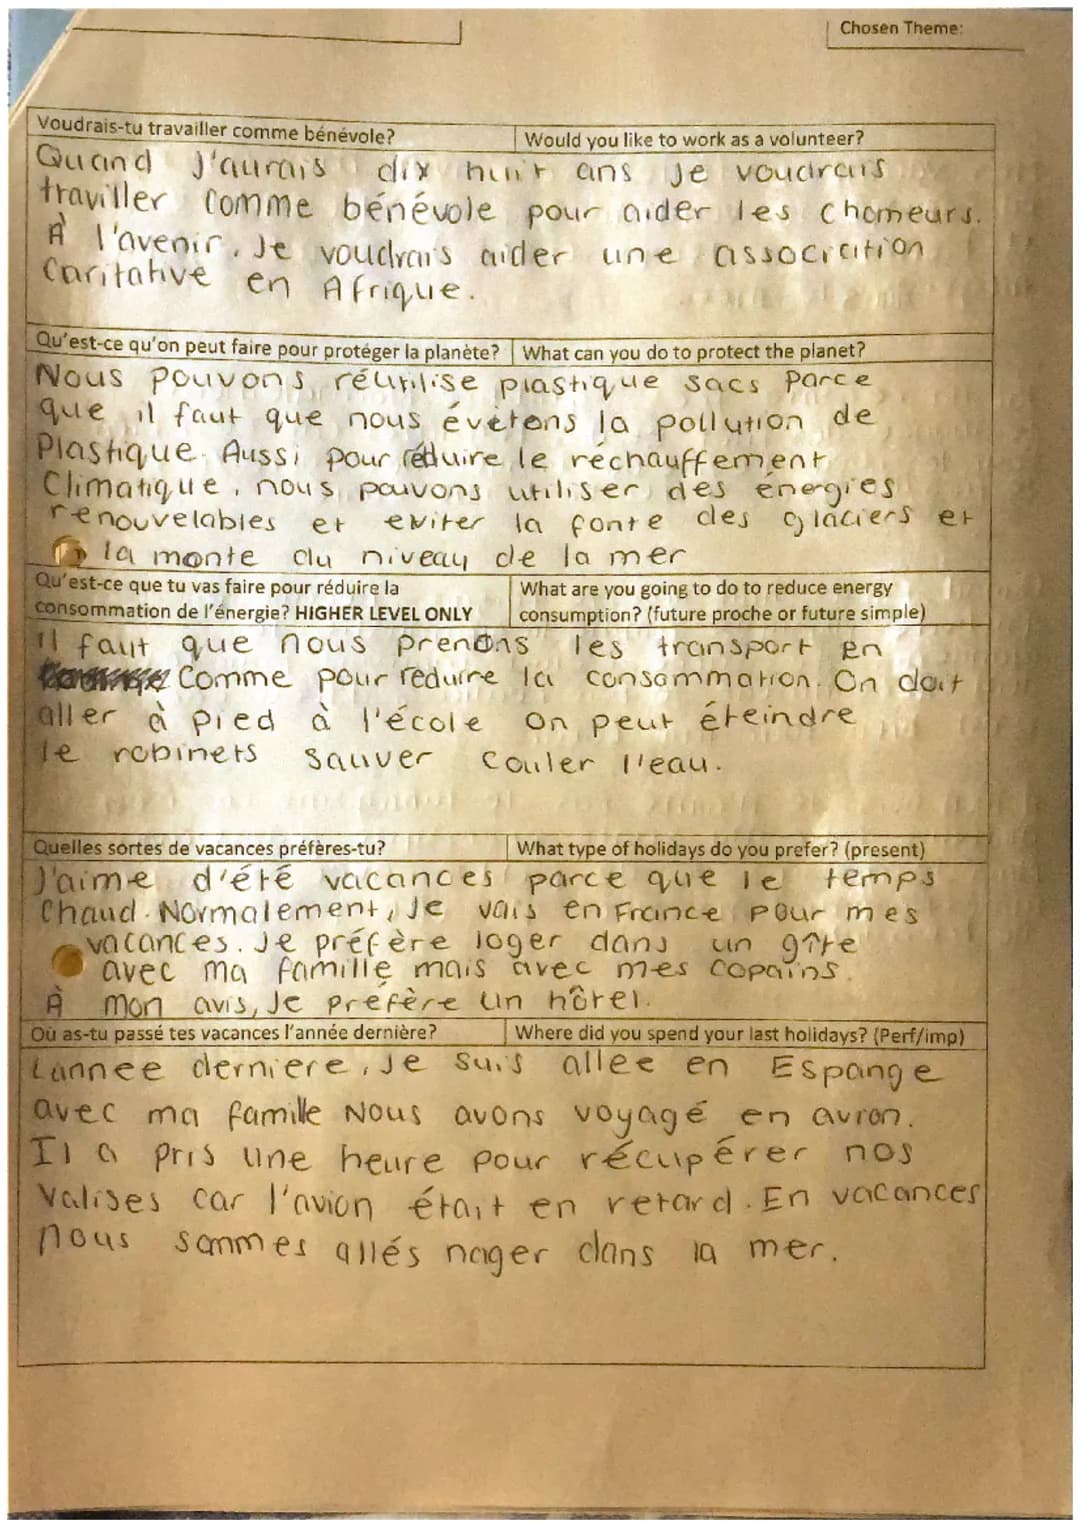 Chosen Theme:
Voudrais-tu travailler comme bénévole? Would you like to work as a volunteer?
Quand J'aurais dix huit ans Je voudrais
traviller comme bénévole pour aider les chomeurs.
À l'avenir, Je voudrais aider une association
Caritative en Afrique.
Qu'est-ce qu'on peut faire pour protéger la planète? What can you do to protect the planet?
Nous pouvons réutilise plastique sacs Parce
que il faut que nous évètons la pollution de
Plastique. Aussi pour réduire le réchauffement
Climatique, nous pouvons utiliser des énergies
renouvelables et eviter la fonte des glaciers et
la monte du niveau de la mer
Qu'est-ce que tu vas faire pour réduire la What are you going to do to reduce energy
consommation de l'énergie? HIGHER LEVEL ONLY consumption? (future proche or future simple)
il faut que nous prenons les transport en
Comme pour réduire la consommation. On doit
aller à pied à l'école on peut éteindre
le robinets sauver couler l'eau.
Quelles sortes de vacances préfères-tu? What type of holidays do you prefer? (present)
J'aime d'été vacances parce que le temps
Chaud. Normalement, Je vais en France pour mes
vacances. Je préfère loger dans un gîte
avec ma famille mais avec mes copains.
À mon avis, Je préfère un hôtel.
Où as-tu passé tes vacances l'année dernière? Where did you spend your last holidays? (Perf/imp)
Lannee derniere, Je suis allee en Espange
avec ma famille Nous avons voyagé en avion.
Il a pris une heure pour récupérer nos
valises car l'avion était en retard. En vacances
nous sommes allés nager dans la mer.